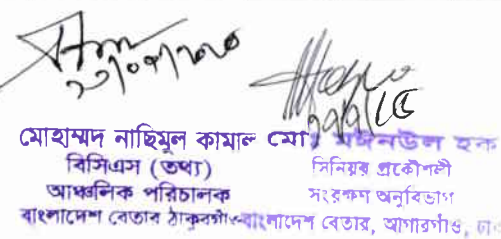 মোহাম্মদ নাছিমুল কামাল
বিসিএস (তথ্য)
আঞ্চলিক পরিচালক
বাংলাদেশ বেতার ঠাকুরগাঁও
মোঃ মঈনউল হক
সিনিয়র প্রকৌশলী
সংরক্ষণ অনুবিভাগ
বাংলাদেশ বেতার, আগারগাঁও,